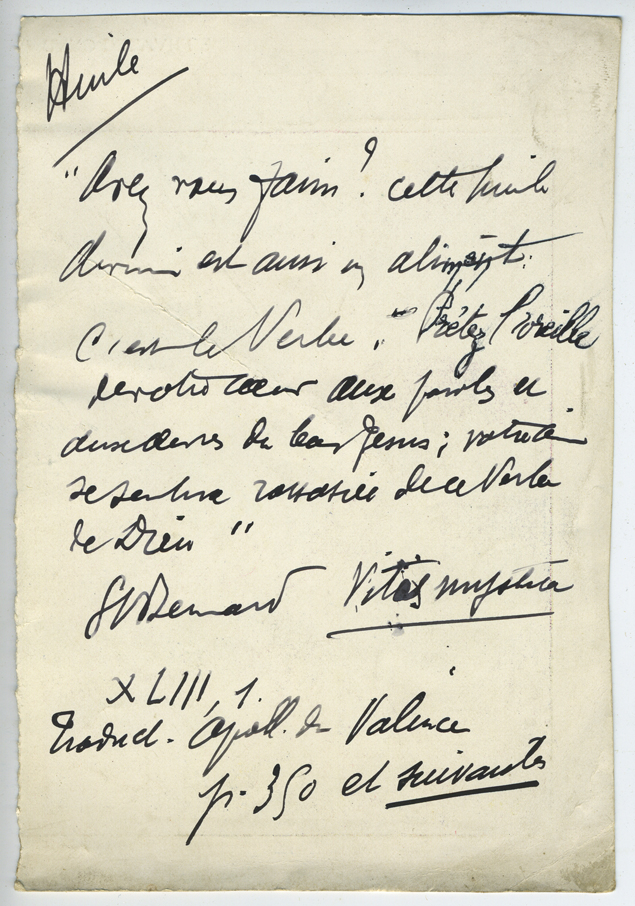 Huile
"Avez vous faim? cette huile
divine est aussi un aliment:
c'est le Verbe. "Prêtez l'oreille
de votre cœur aux paroles et
aux œuvres du bon Jesus; votre âme
se sentira rassasiée de ce Verbe
de Dieu"
St Bernard Vitis mystica
XLIII, 1.
Traduct. Apoll. de Valence
p. 350 et suivantes